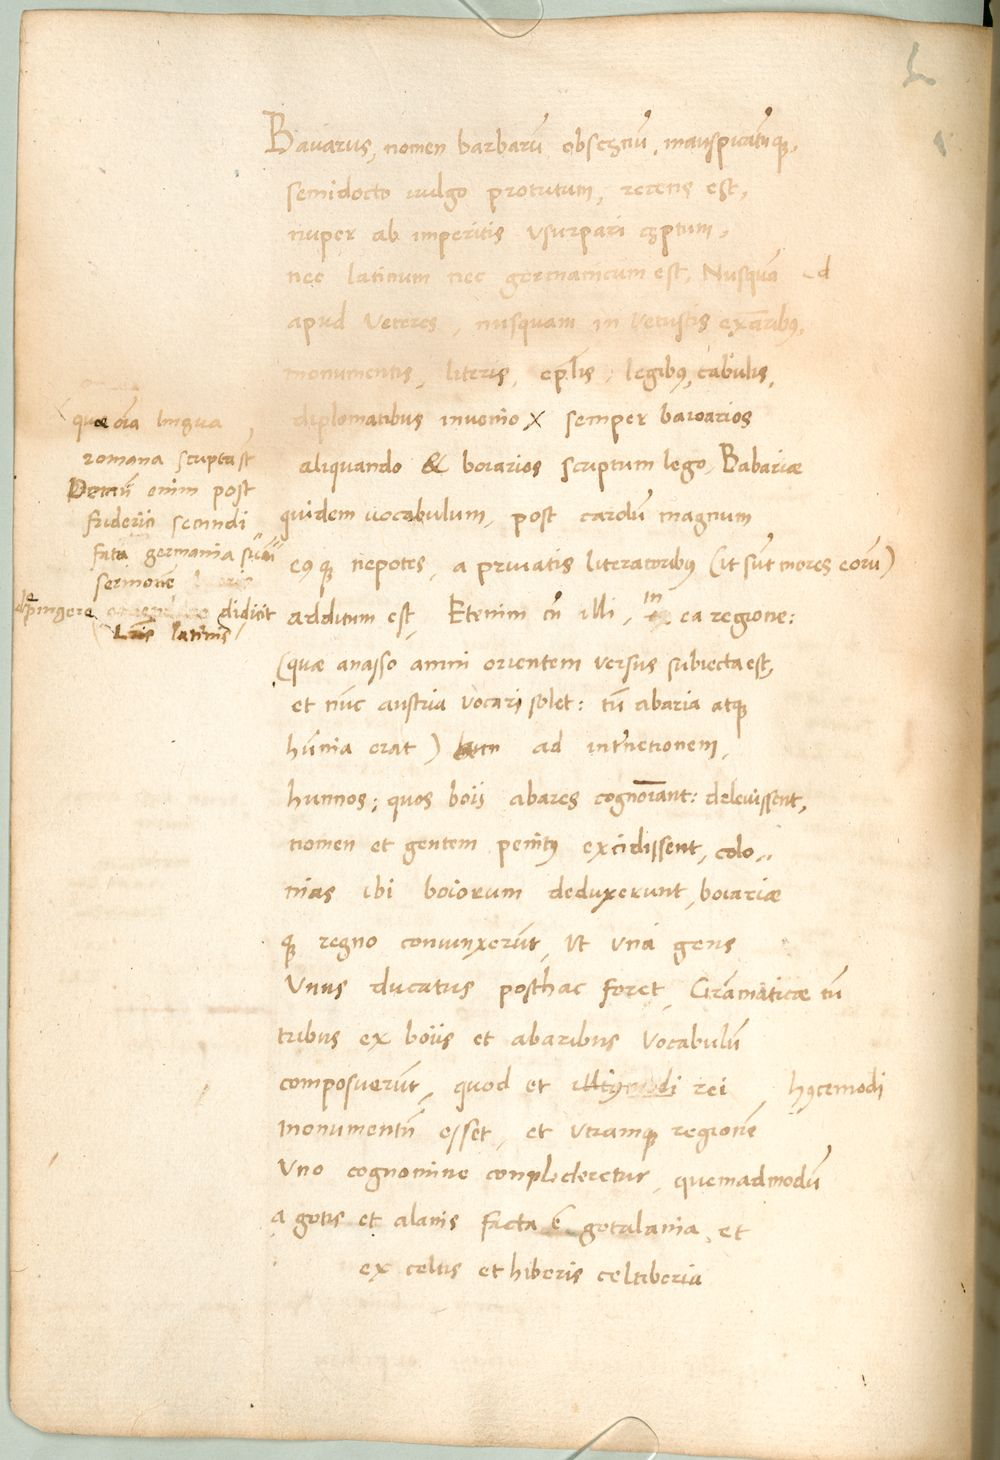 Bavarus, nomen barbarū obscęnū, inauspicatūq̧,
semidocto vulgo protritum, recens est,
nuper ab imperitis vsurpari cęptum,
nec latinum nec germanicum est. Nusquā
apud veteres, nusquam in vetustis exēribꝰ,
monumentis, literis, epl̄is, legibꝰ, tabulis,
diplomatibus invenio X semper baioarios
aliquando & boiarios scriptum lego, Babariæ
quidem vocabulum, post carolū magnum
eꝰq̧ nepotes, a priuatis literatoribꝰ (it sūt mores eorū)
additum est, Etenim cū illi, in ea regione:
(quæ anasso amni orientem versus subiecta est,
et nūc austria vocari solet: tū abaria atq̧
hūnia erat) ad internetionem,
hunnos; quos boij abares cognorant: delevissent,
nomen et gentem penitꝰ excidissent, colo„
nias ibi boiorum deduxerunt, boiariæ
q̧ regno conuinxerūt, vt vna gens
vnus ducatus posthac foret, Grāmaticæ tū
tribus ex boiis et abaribus vocabulū
composuerūt, quod et rei, hꝰcemodi
monumentū esset, et vtramq̧ regionē
vno cognomine conplecteretur, quemadmodū
a gotis et alanis facta ē gotalania, et
ex celtis et hiberis celtiberia
quæ oīa lingua
romana scripta st̄
Demū enim post
friderici secundi
fata germania suū
sermonē
depingere didicit
lr̄is latinis